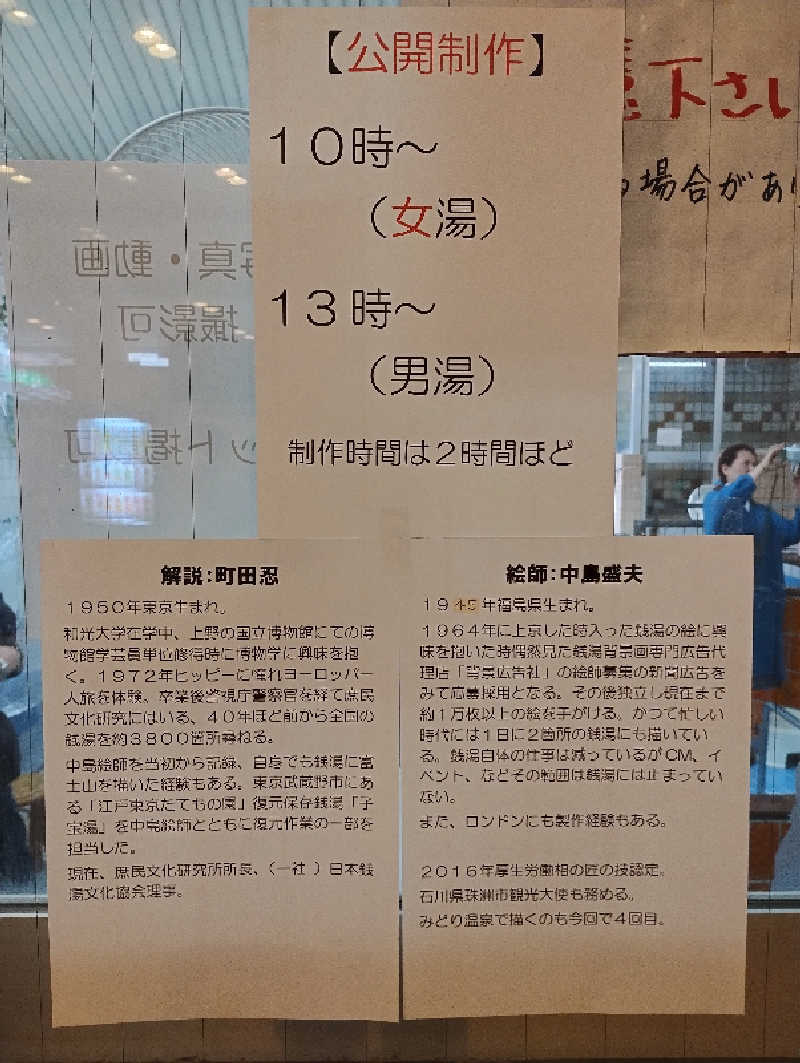 【公開制作】
10時～
（女湯）
13時～
（男湯）
制作時間は2時間ほど
下さい
場合があ
写真・動画
撮影可
ット掲載可
解説：町田忍
1950年東京生まれ。
和光大学在学中、上野の国立博物館にての博
物館学芸員単位修得時に博物学に興味を抱
く。1972年ヒッピーに憧れヨーロッパー
人旅を体験、卒業後警視庁警察官を経て庶民
文化研究にはいる、40年ほど前から全国の
銭湯を約3800箇所尋ねる。
中島絵師を当初から記録、自身でも銭湯に富
士山を描いた経験もある。東京武蔵野市にあ
る「江戸東京たてもの園」復元保存銭湯「子
宝湯」を中島絵師とともに復元作業の一部を
担当した。
現在、庶民文化研究所所長、（一社）日本銭
湯文化協会理事。
絵師：中島盛夫
1945年福島県生まれ。
1964年に上京した時入った銭湯の絵に興
味を抱いた時偶然見た銭湯背景画専門広告代
理店「背景広告社」の絵師募集の新聞広告を
みて応募採用となる。その後独立し現在まで
約1万枚以上の絵を手がける。かつて忙しい
時代には1日に2箇所の銭湯にも描いてい
る。銭湯自体の仕事は減っているがCM、イ
ベント、などその範囲は銭湯には止まってい
ない。
また、ロンドンにも製作経験もある。
2016年厚生労働相の匠の技認定。
石川県珠洲市観光大使も務める。
みどり温泉で描くのも今回で4回目。